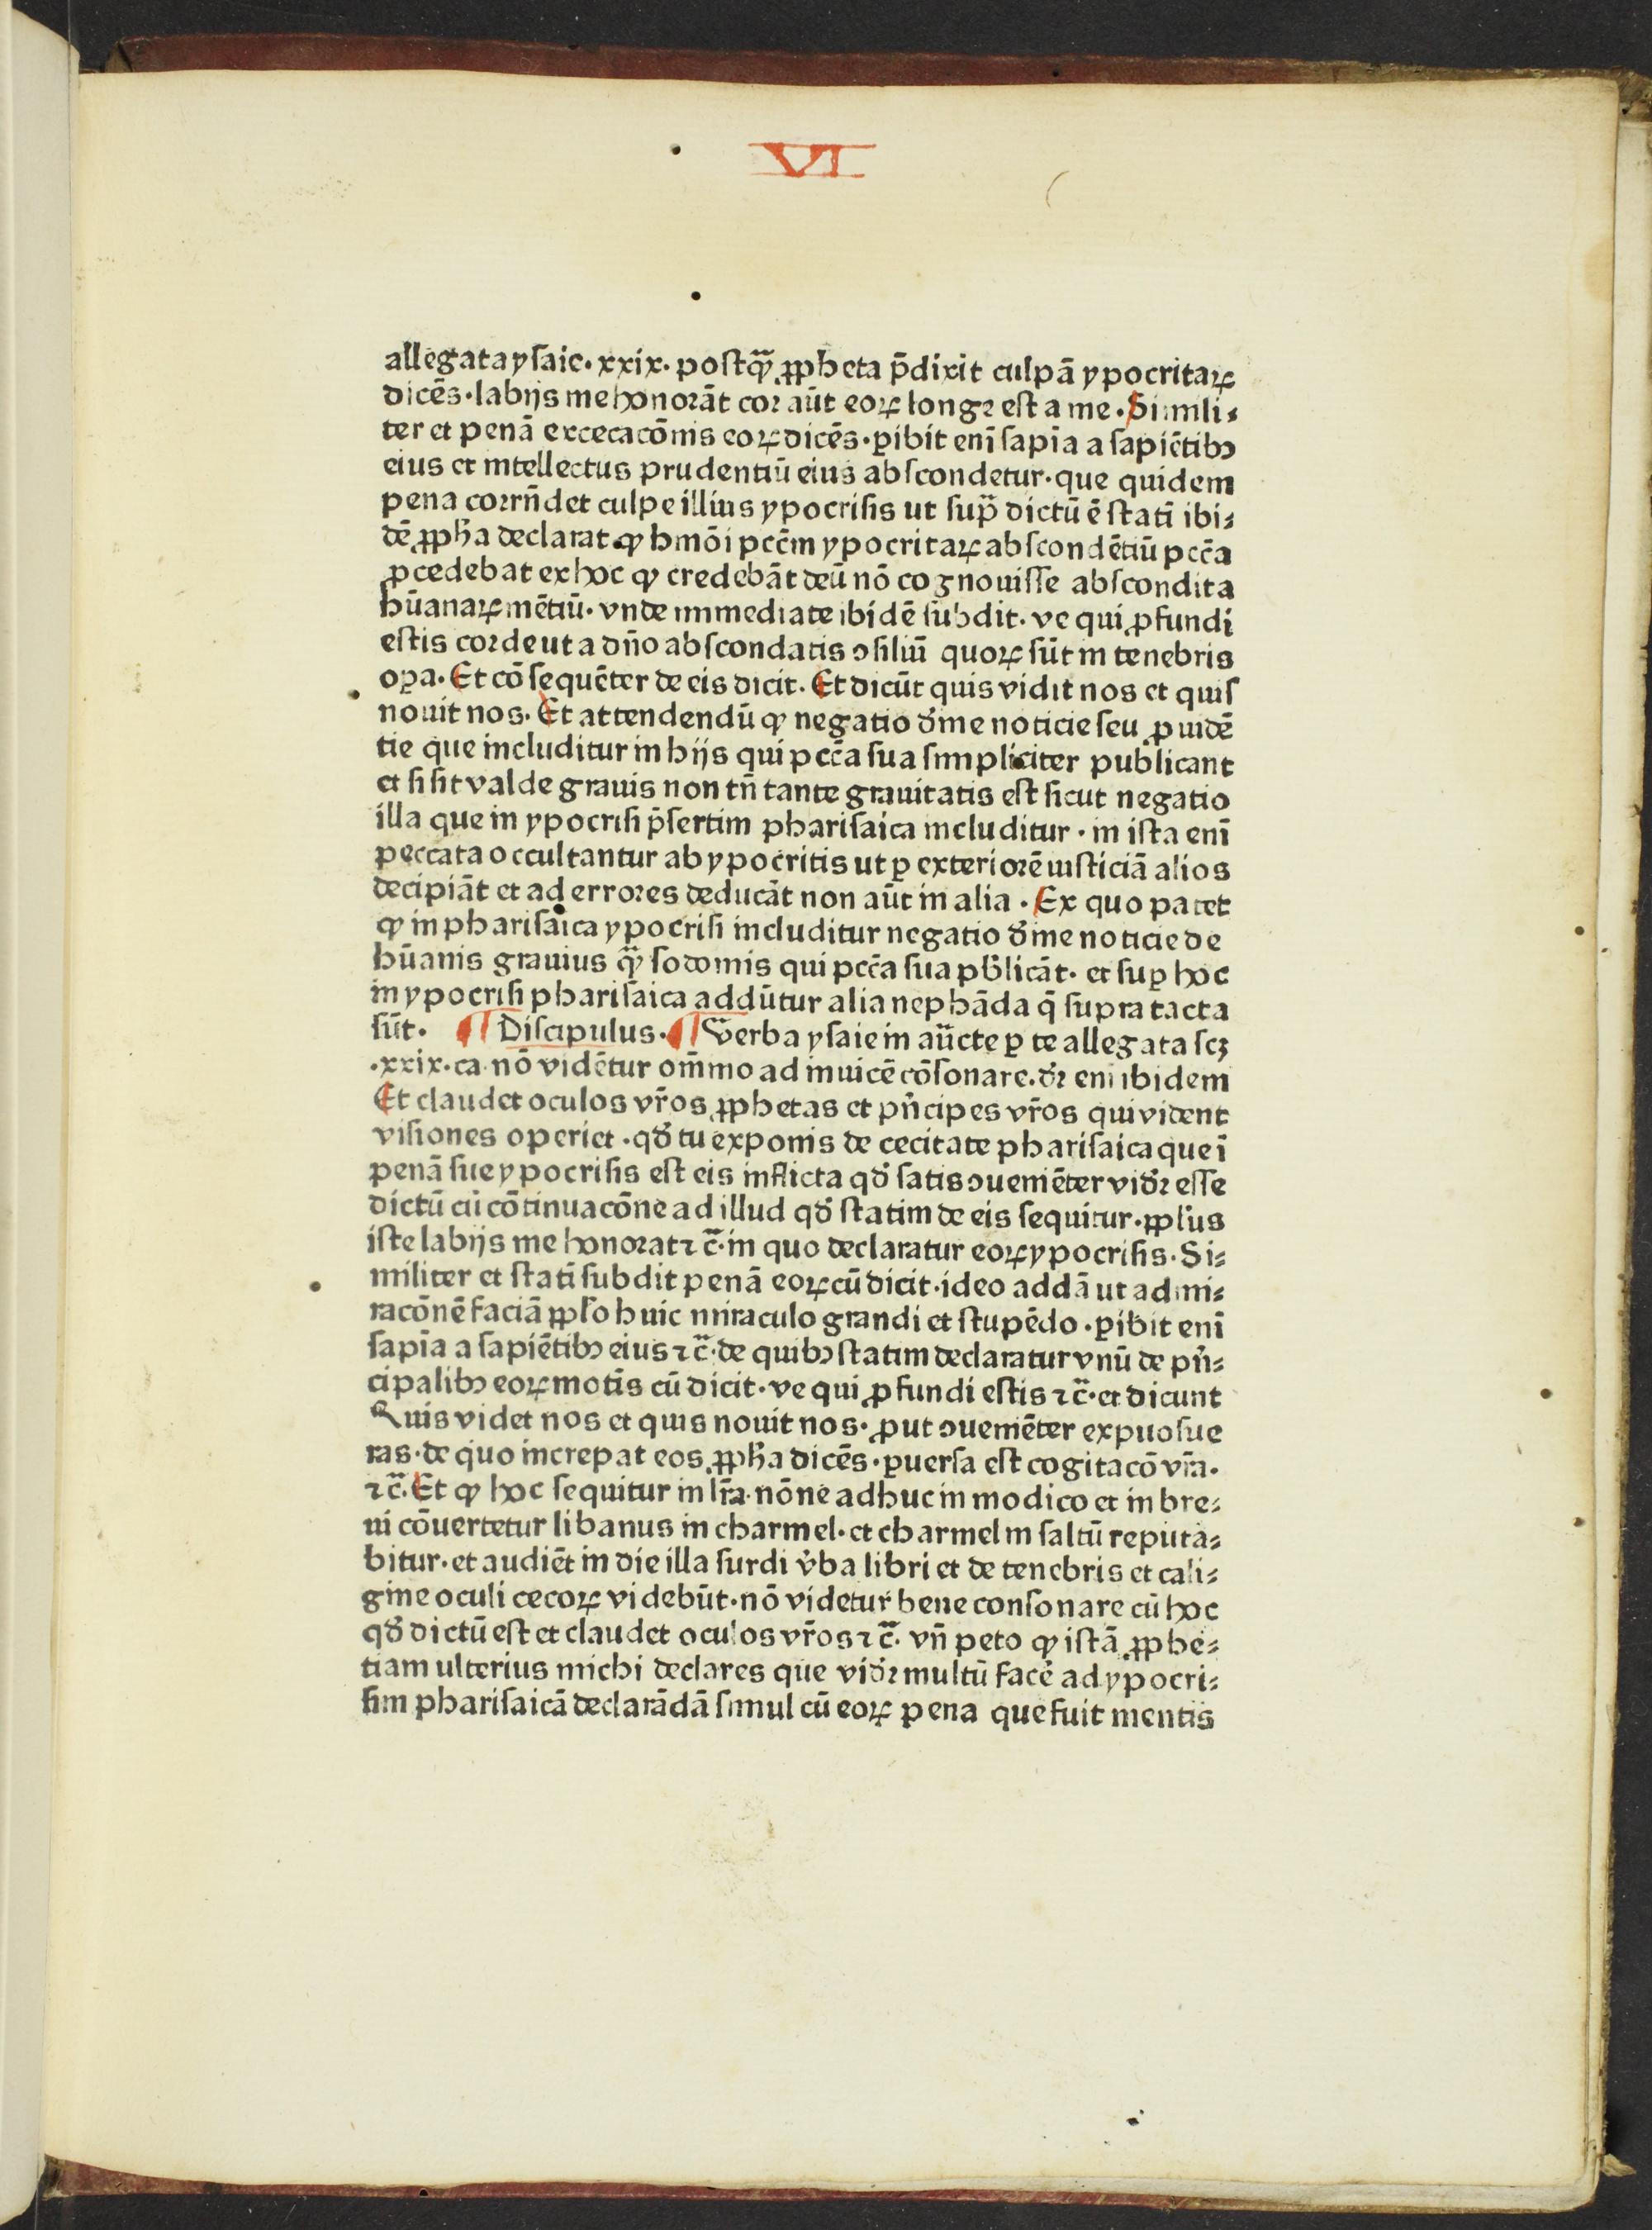 VI
allegata ysaie· xxix· postꝙ̃ ꝓpheta p̃dixit culpā ypocritaꝝ
dicēs·labijs me honorāt cor aūt eoꝝ longe est a me·Simili⸗
ter et penā excecacōnis eoꝝ dicēs·ꝑibit enī sapīa a sapiētibꝫ
eius et intellectus prudentiū eius abscondetur·que quidem
pena corrn̄det culpe illius ypocrisis ut sup̃ dictū ē statī ibi⸗
dē ꝓph̄a declarat ꝙ hmōi pccm̄ ypocritaꝝ abscondētiū pcc̄a
ꝓcedebat ex hoc ꝙ credebāt deū nō cognouisse abscondita
hūanaꝝ mētiū· vnde immediate ibidē subdit· ve qui ꝓfundi
estis corde ut a dn̄o abscondatis ↄsiliū quoꝝ sūt in tenebris
oꝑa·Et cōsequēter de eis dicit·Et dicūt quis vidit nos et quis
nouit nos·Et attendendū ꝙ negatio dīne noticie seu ꝓuidē
tie que includitur in hijs qui pcc̄a sua simpliciter publicant
et si sit valde grauis non tn̄ tante grauitatis est sicut negatio
illa que in ypocrisi p̄sertim pharisaica includitur·in ista enī
peccata occultantur ab ypocritis ut ꝑ exteriorē iusticiā alios
decipiāt et ad errores deducāt non aūt in alia·Ex quo patet
ꝙ in pharisaica ypocrisi includitur negatio dīne noticie de
hūanis grauius ꝙ̃ sodomis qui pcc̄a sua pb̄licāt· et suꝑ hoc
in ypocrisi pharisaica addūtur alia nephāda q̄ supra tacta
sūt· ¶ Discipulus·¶ Verba ysaie in aūcte ꝑ te allegata scꝫ
·xxix·ca·nō vidētur om̄ino ad inuicē cōsonare·dr̄ enī ibidem
Et claudet oculos vr̄os ꝓphetas et pn̄cipes vr̄os qui vident
visiones operiet·qd̄ tu exponis de cecitate pharisaica que ī
penā sue ypocrisis est eis inflicta qd̄ satis ↄueniēter vidr̄ esse
dictū cū cōtinuacōne ad illud qd̄ statim de eis sequitur·ppl̄us
iste labijs me honorat ⁊ c̄·in quo declaratur eoꝝ ypocrisis·Si⸗
militer et statī subdit penā eoꝝ cū dicit·ideo addā ut admi⸗
racōnē faciā ppl̄o huic miraculo grandi et stupēdo·ꝑibit enī
sapīa a sapiētibꝫ eius ⁊ c̄·de quibꝫ statim declaratur vnū de pn̄⸗
cipalibꝫ eoꝝ motīs cū dicit·ve qui ꝓfundi estis ⁊ c̄·et dicunt
Quis videt nos et quis nouit nos·ꝓut ↄueniēter expuosue
ras·de quo increpat eos ꝓph̄a dicēs·ꝑuersa est cogitacō vr̄a·
⁊ c̄·Et ꝙ hoc sequitur in lr̄a·nōne adhuc in modico et in bre⸗
ui cōuertetur libanus in charmel·et charmel in saltū reputa⸗
bitur·et audiēt in die illa surdi v̄ba libri et de tenebris et cali⸗
gine oculi cecoꝝ videbūt·nō videtur bene consonare cū hoc
qd̄ dictū est et claudet oculos vr̄os ⁊ c̄· vn̄ peto ꝙ istā ꝓphe⸗
tiam ulterius michi declares que vidr̄ multū facē ad ypocri⸗
sim pharisaicā declarādā simul cū eoꝝ pena que fuit mentis